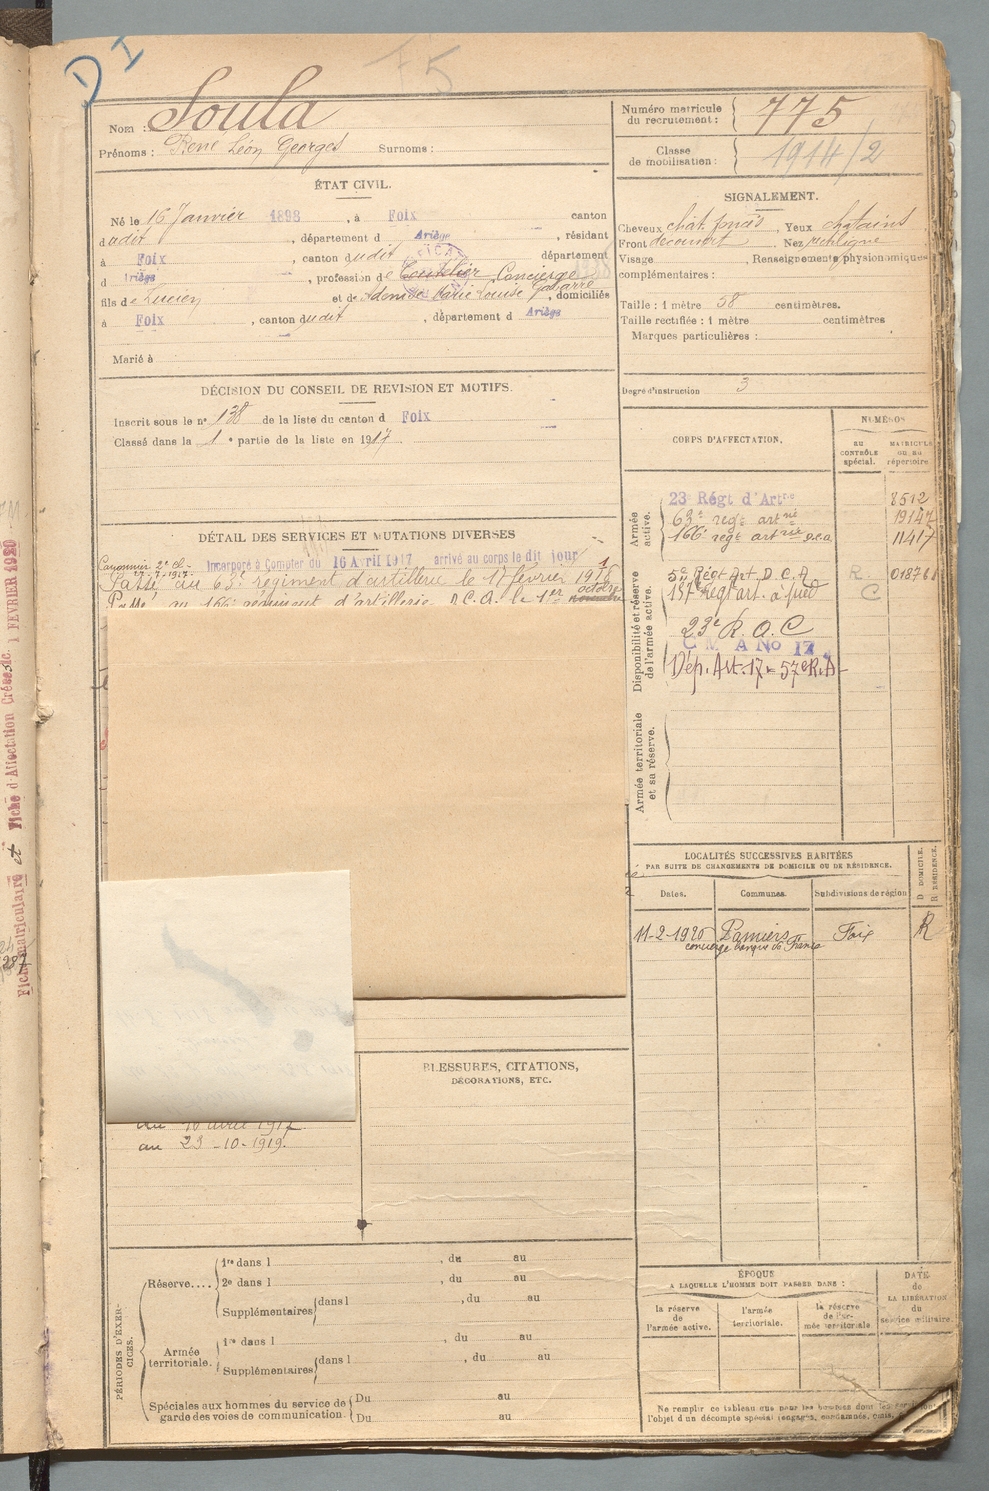 D I
F5
Nom : Soula
Prénoms : René Léon Georges Surnoms :
Numéro matricule du recrutement : 775
Classe de mobilisation : 1914/2
ÉTAT CIVIL.
Né le 16 Janvier 1898, à Foix canton
dudit, département d Ariège, résidant
à Foix, canton dudit département
d Ariège, profession de Coutelier Concierge
fils de Lucien et de Marie Louise, domiciliés
à Foix, canton dudit, département d Ariège
Marié à
SIGNALEMENT.
Cheveux chât. foncés, Yeux châtains
Front découvert, Nez rectiligne
Visage, Renseignements physionomiques
complémentaires :
Taille : 1 mètre 58 centimètres.
Taille rectifiée : 1 mètre centimètres
Marques particulières :
Degré d'instruction 3
DÉCISION DU CONSEIL DE REVISION ET MOTIFS.
Inscrit sous le n° 138 de la liste du canton d Foix
Classé dans la 1e partie de la liste en 1917.
DÉTAIL DES SERVICES ET MUTATIONS DIVERSES
Incorporé à Compter du 16 Avril 1917 arrivé au corps le dit jour
Canonnier 2e cl.
Passé au 63e régiment d'artillerie le 17 février 191
Passé au 166e régiment d'artillerie D.C.A. le 1er octobre
CORPS D'AFFECTATION.
NUMÉROS
au contrôle spécial.
matricule ou au répertoire
Armée active.
23e Régt d'Artie 8512
63e regt artrie 19147
166e regt artrie D.C.A 11417
Disponibilité et réserve de l'armée active.
5e Régt Art. D.C.A R.
Régt art. à pied C
23e R.A.C
C M A No 17
Dép. Art. 17 - 57e R.A.
Armée territoriale et sa réserve.
LOCALITÉS SUCCESSIVES HABITÉES
PAR SUITE DE CHANGEMENTS DE DOMICILE OU DE RÉSIDENCE.
Dates. Communes. Subdivisions de région D DOMICILE. R RÉSIDENCE.
11-2-1920 Pamiers Foix R
concierge banque de France
BLESSURES, CITATIONS,
DÉCORATIONS, ETC.
du 16 avril 1917
au 23-10-1919.
PÉRIODES D'EXERCICES.
Réserve.... 1re dans l , du au
2e dans l , du au
Supplémentaires dans l , du au
Armée territoriale. 1re dans l , du au
Supplémentaires dans l , du au
Spéciales aux hommes du service de garde des voies de communication. Du au
Du au
ÉPOQUE
A LAQUELLE L'HOMME DOIT PASSER DANS :
la réserve de l'armée active. l'armée territoriale. la réserve de l'armée territoriale.
DATE de LA LIBÉRATION du service militaire.
Ne remplir ce tableau que pour les hommes dont les services
l'objet d'un décompte spécial (engagés, condamnés, omis,
Fiche matriculaire et Fiche d'Affectation Créées le 1 FEVRIER 1920